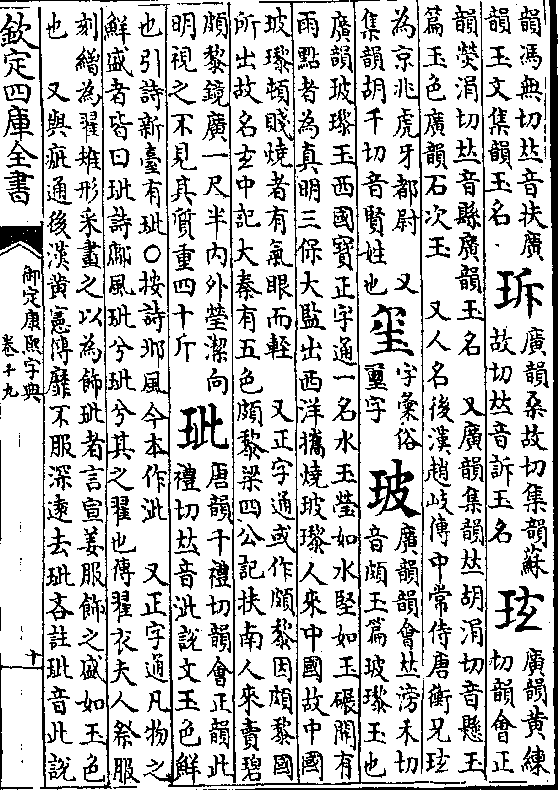 韻馮無切𠀤音扶廣
韻玉文集韻玉名
廣韻桑故切集韻蘇
故切𠀤音訴玉名
玹
廣韻黄練
切韻會正
韻熒涓切𠀤音縣廣韻玉名 又廣韻集韻𠀤胡涓切音懸玉
篇玉色廣韻石次玉 又人名後漢趙岐傳中常侍唐衡兄玹
為京兆虎牙都尉 又
集韻胡千切音賢姓也
玺
字彙俗
璽字
玻
廣韻韻會𠀤滂禾切
音頗玉篇玻瓈玉也
廣韻玻瓈玉西國寶正字通一名水玉瑩如水堅如玉碾開有
雨點者為真明三保大監出西洋擕燒玻瓈人來中國故中國
玻瓈頓賤燒者有氣眼而輕 又正字通或作頗黎因頗黎國
所出故名玄中記大秦有五色頗黎梁四公記扶南人來賣碧
頗黎鏡廣一尺半内外瑩潔向
明視之不見其質重四十斤
玼
唐韻千禮切韻會正韻此
禮切𠀤音泚說文玉色鮮
也引詩新臺有玼○按詩邶風今本作泚 又正字通凡物之
鮮盛者皆曰玼詩鄘風玼兮玼兮其之翟也傳翟衣夫人祭服
刻繒為翟雉形采畫之以為飾玼者言宣姜服飾之盛如玉色
也 又與疵通後漢黄憲傳靡不服深遠去玼吝註玼音此說
欽定四庫全書
御定康熙字典
卷十九
十